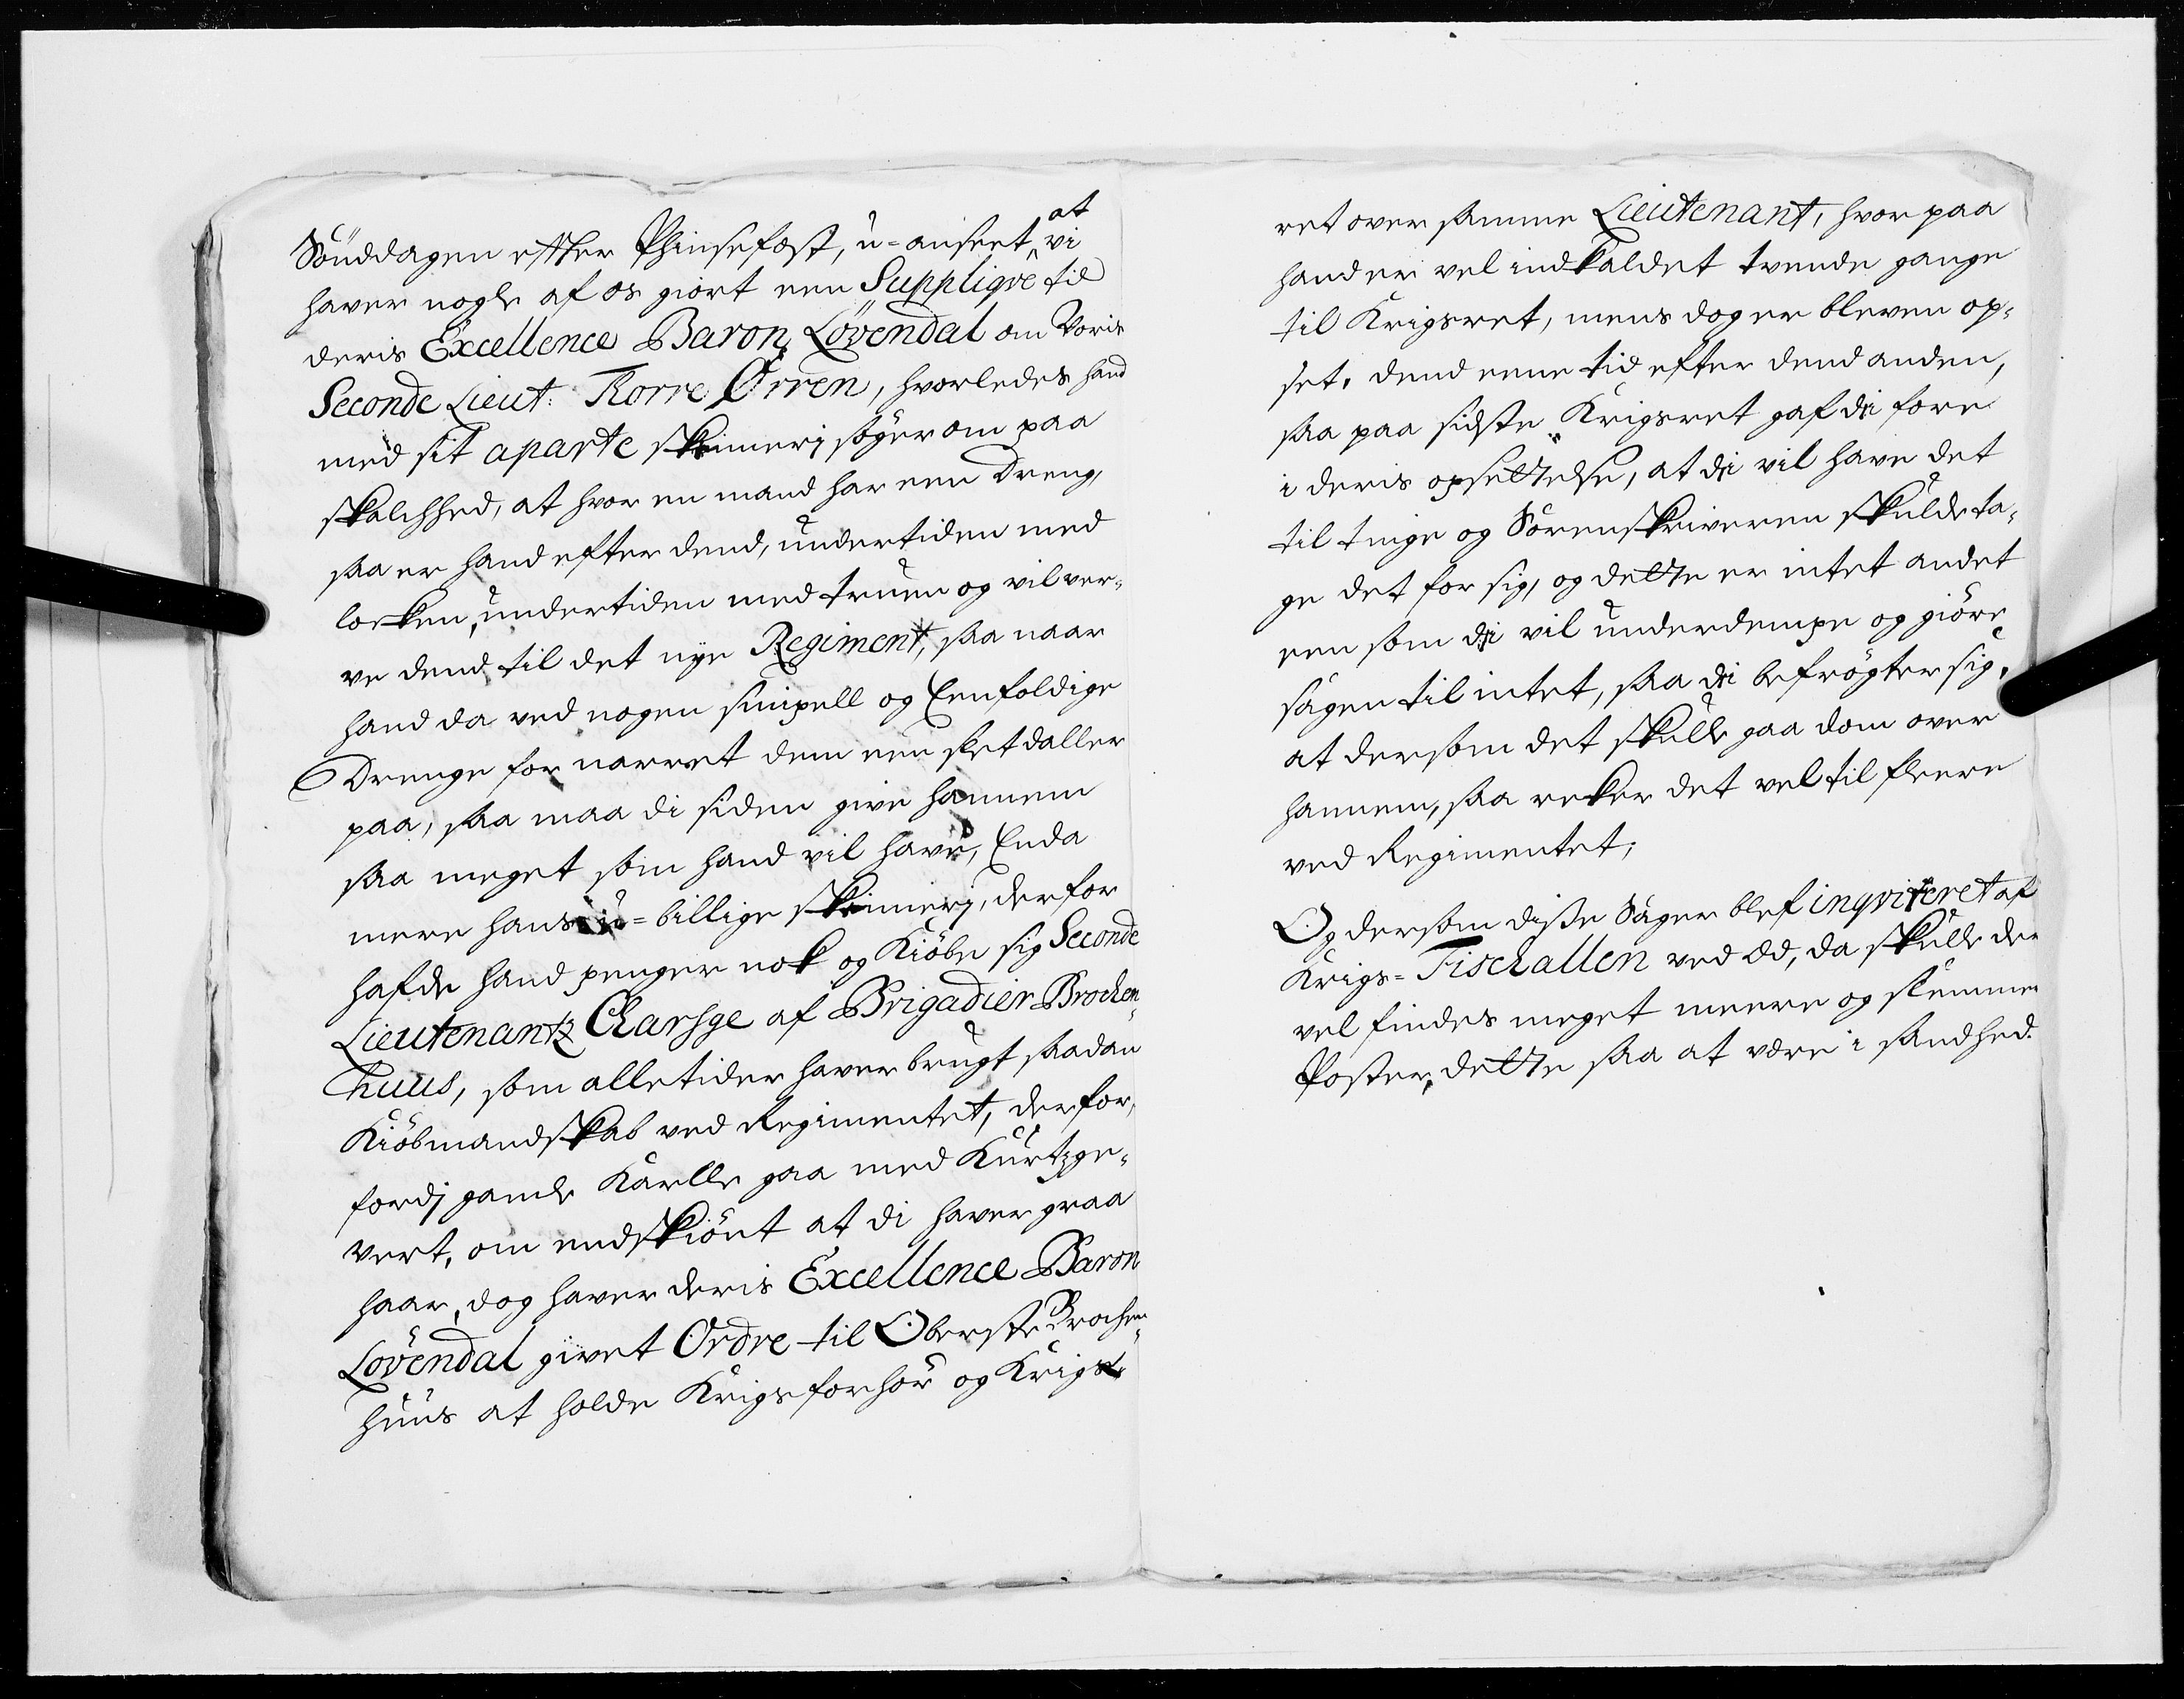 Sönddagen effter Phinsefæst, u=anseet, at vi
haver nogle af os giort een Supplique til
deris Excellence Baron Lövendal om Voris
Seconde Lieut: Korre Orren, hvorledes hand
med sit aparte skinnerj söger om paa
skalchhed, at hvor en mand har een Dreng,
saa er hand efter dend, undertiden med
locken, undertiden med truen og vil ver-
ve dend til det nye Regiment, saa naar
hand da ved nogen simpell og Eenfoldige
Drenge for narret dem een sletdaller
paa, saa maa di siden give hannem
saa meget som hand vil have, Enda
mere hans u=billige skinnerj, derfor
hafde hand penger nok og Kiöbe sig Seconde
Lieutenantz Charsge af Brigadier Brochen-
huus, som alletider haver brugt saadan
Kiöbmandskab ved Regimentet, derfor,
fordj gamle Karlle gaa med Kurtzge-
vert, om endskiönt at di haver graa
haar, dog haver deris Excellence Baron
Lövendal givet Ordre til Oberste Brochen-
huus at holde Krigsforhör og Krigs-
ret over samme Lieutenant, hvor paa
hand er vel indkaldet tvende gange
til Krigsret, mens dog er bleven op-
set, dend eene tid efter dend anden,
saa paa sidste Krigsret gaf di fore
i deris opsettelse, at di vil have det
til tinge og Sorenskriveren skulde ta-
ge det for sig, og dette er intet andet
een som di vil underdempe og giöre
sagen til intet, saa di befrögter sig,
at dersom det skulle gaa dom over
hannem, saa reker det vel til fleere
ved Regimentet;
Og dersom disse Sager blef inqviteret af
Krigs=Fischallen ved æd, da skulle der
vel findes meget meere og slemmer
Poster, dette saa at være i sandhed.